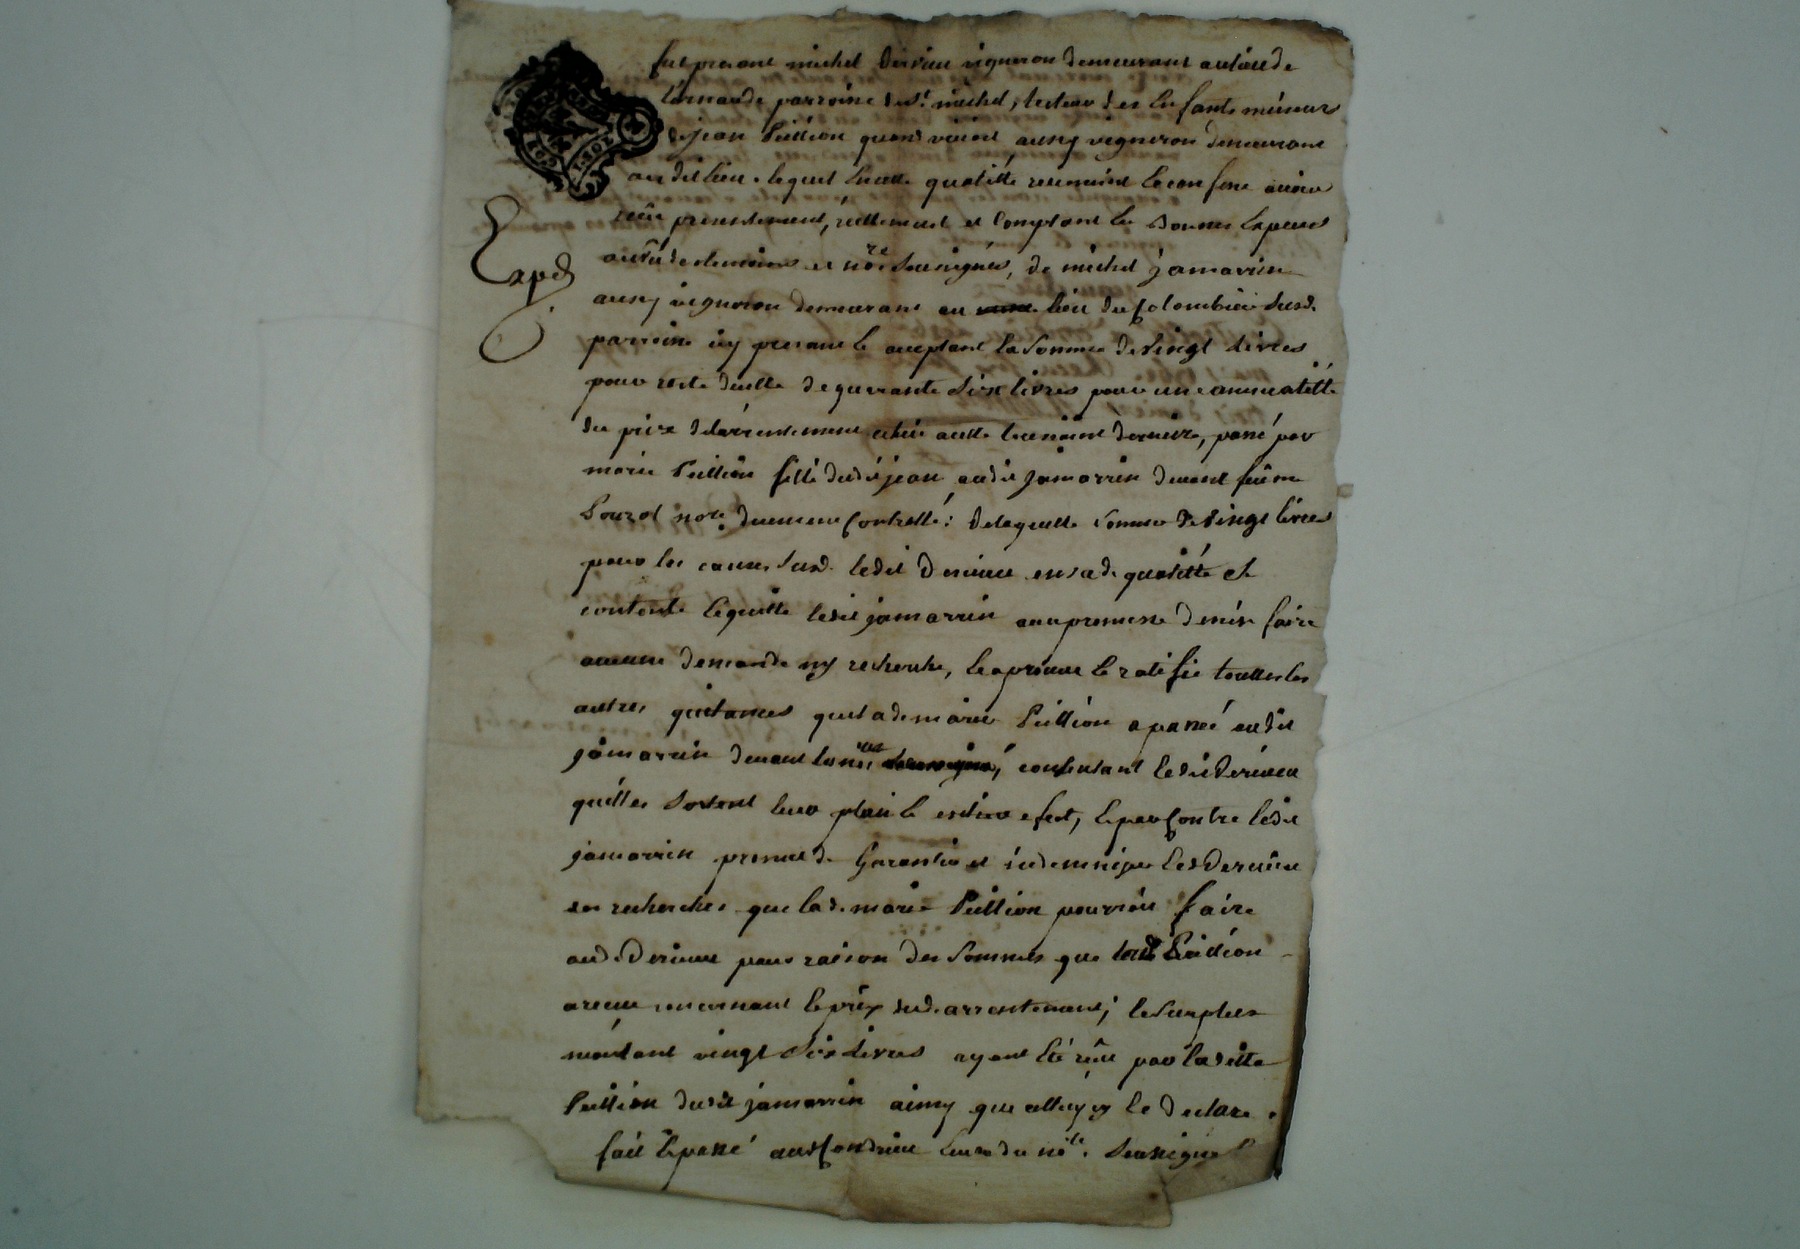 fut presant michel Derieu vigneron demeurant au lieu de
parroisse de St michel, tuteur des Enfants mineurs
de jean Pittion quand vivint aussy vigneron demeurant
au dit lieu. lequel En cette qualitté
reçeu presentement, réellement et Comptant En bonnes Especes
au vû des temoins et nore soussignés, de michel jamarrin
Expd
aussy vigneron demeurant au lieu du Colombier susd.
parroisse icy presant & acceptant la Somme de vingt livres
pour reste de celle de quarante Six livres pour une annuatitté
du prix d'arrentement echüe a la toussaint derniere, passé par
marie Pittion fille dudit jean audit jamarrin devant feu me
nore. duement Controllé: de laquelle somme de vingt livres
pour les causes susd. ledit Derieu en sad. qualitté et
contente & quitte ledit jamarrin avec promesse de n'en faire
aucune demande ny recherche, & approuve & ratifie touttes les
autres quitances que lad. marie Pittion a passé audit
jamarrin devant consentant ledit Derieu
qu'elles sortent leur plain & entier efect, & par Contre ledit
jamarrin promet de Garantir et indemniser led. Derieu
des recherches que lad. marie Pittion pourroit faire
aud. Derieu pour raison des sommes que lad. Pittion
a reçeu concernant le prix dud. arrentement; le surplus
montant vingt Six Livres ayant Eté reçu par laditte
Pittion dudit jamarrin ainsy que celluy cy le declare.
fait & passé aud. Condrieu Etude du nore. soussigné